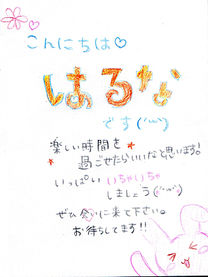 こんにちは♡
はるな
です(''ω'')
楽しい時間を
過ごせたらいいなと思います!
いっぱいいちゃいちゃ
しましょう(''ω'')
ぜひ会いに来て下さい。
お待ちしてます!!